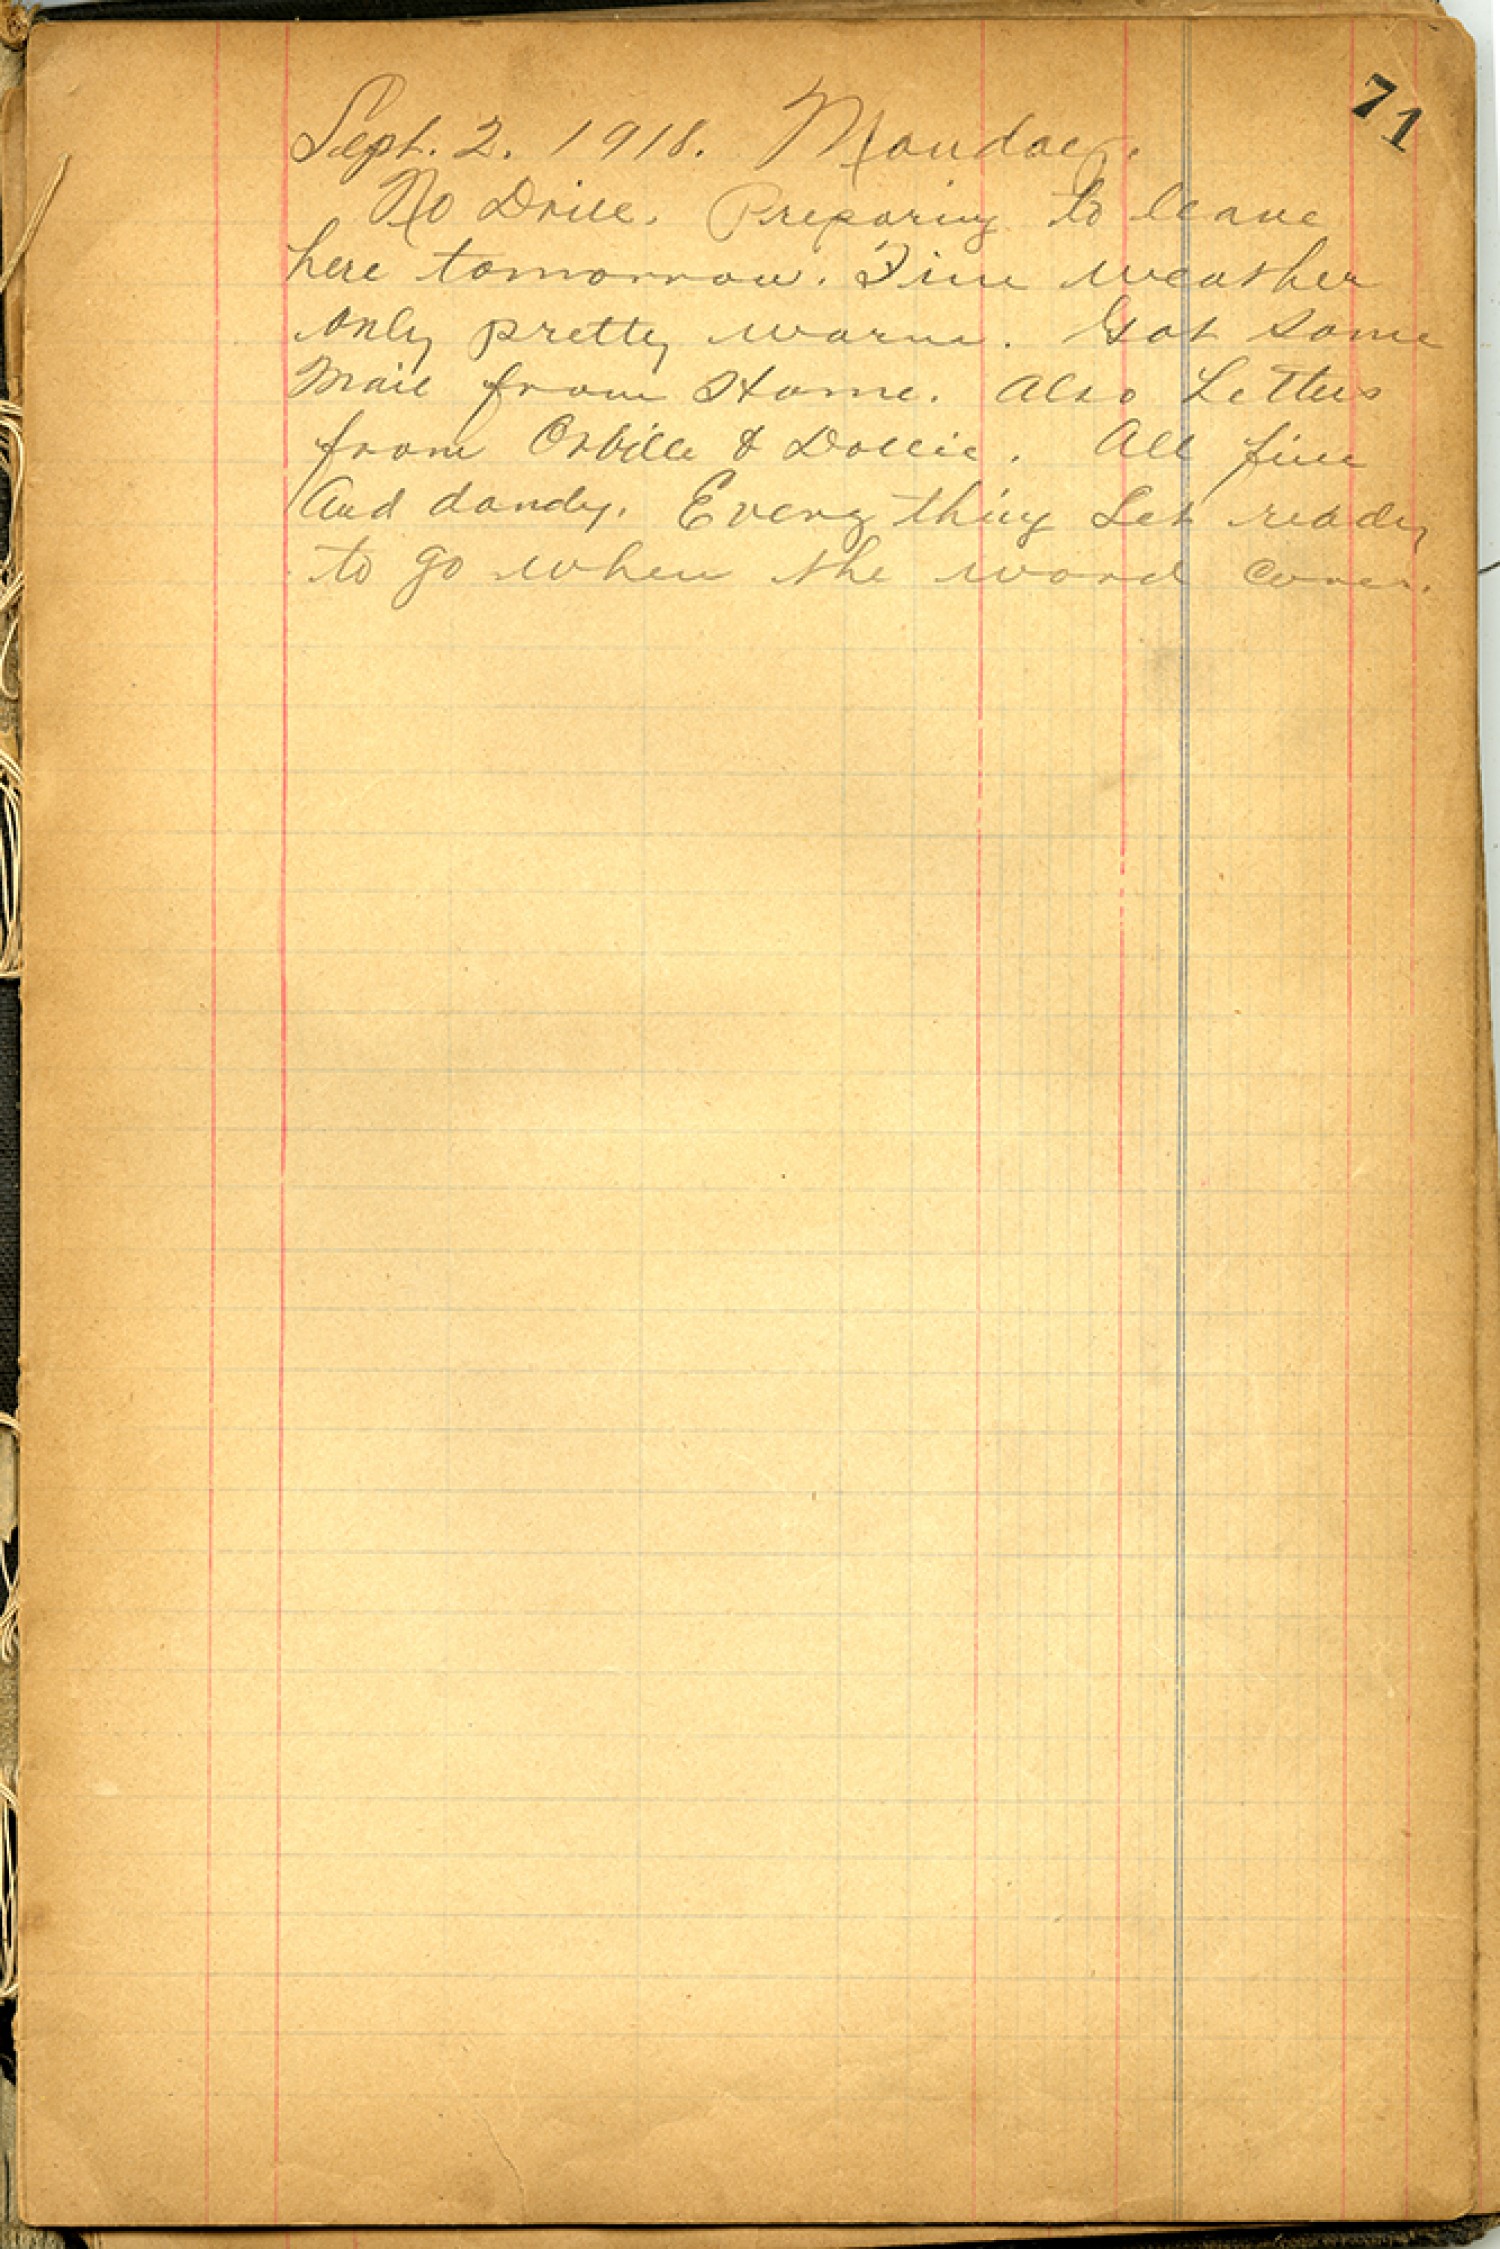 71
Sept. 2. 1918. Monday.
No Drill. Preparing to leave
here tomorrow. Fine weather
only pretty warm. Got some
Mail from Home. Also Letters
from Orbille & Dollie. All fine
And dandy. Every thing Set ready
to go when the word comes.